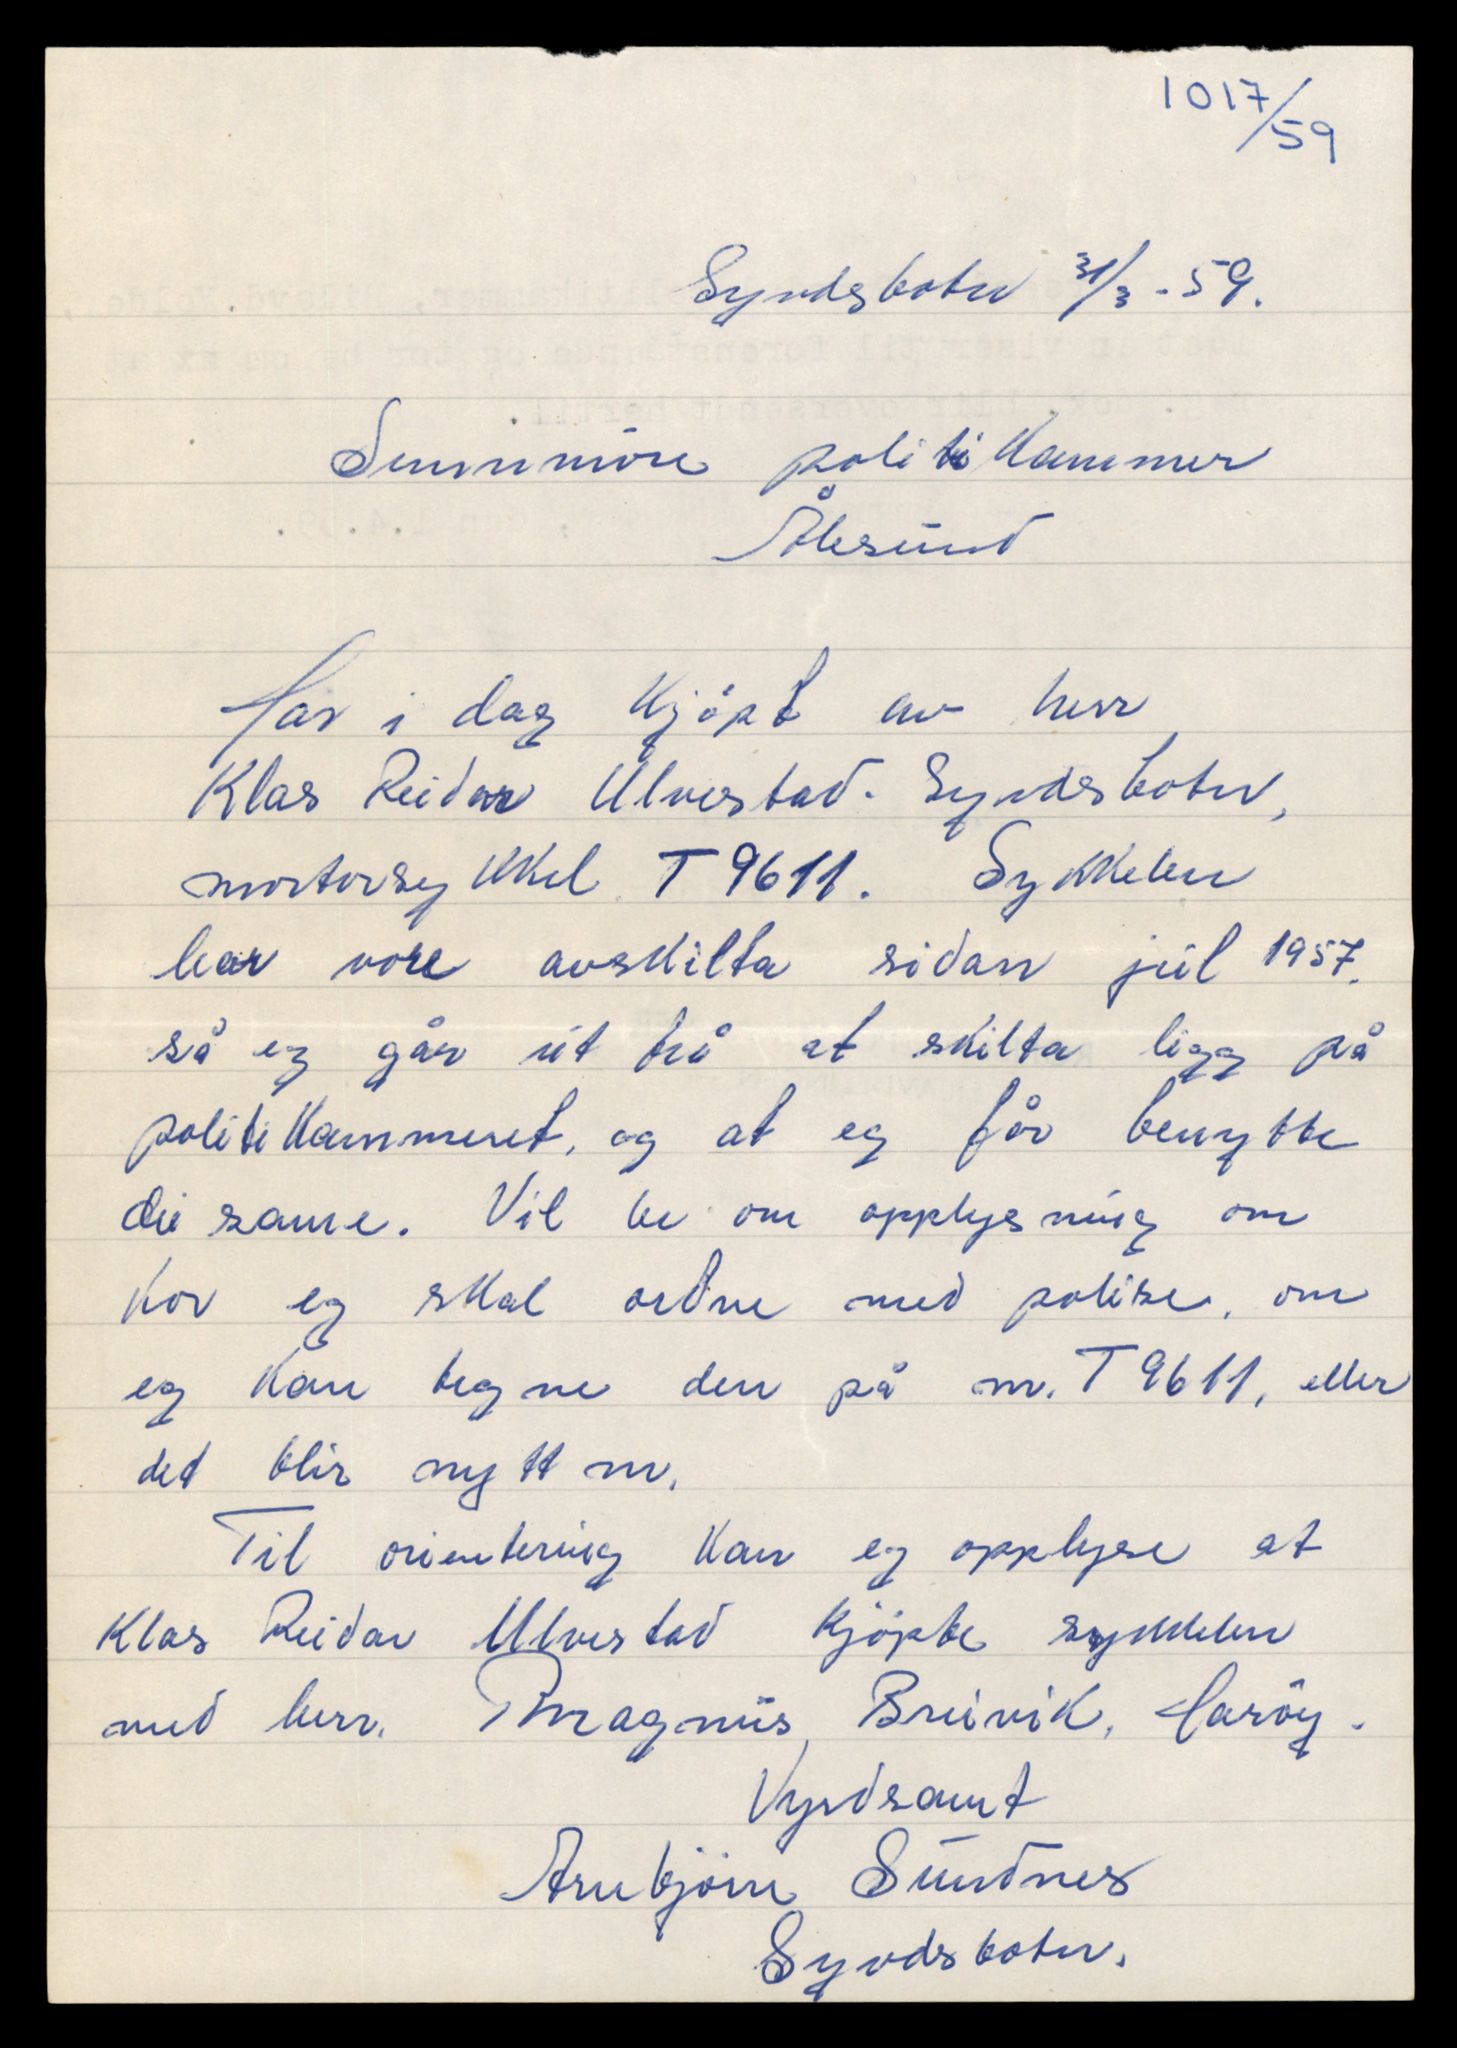 1017/59
Syvdsbotn 31/3 - 59.
Sunnmöre politikammer
Ålesund
Har i dag kjöpt av herr
Klas Reidar Ulvestad. Syvdsbotn,
mortorsykkel T 9611. Sykkelen
har vore avskilta sidan júl 1957.
så eg går út frå at skilta ligg på
politikammeret, og at eg får benytte
dei same. Vil be om opplysning om
kor eg skal ordne med polise, om
eg kan tegne den på nr. T 9611, eller
det blir nytt nr.
Til orientering kan eg opplyse at
Klas Reidar Ulvestad kjöpte sykkelen
med herr. Magnús Breivik, Haröy.
Vyrdsamt
Arnbjörn Sundnes
Syvdsbotn.